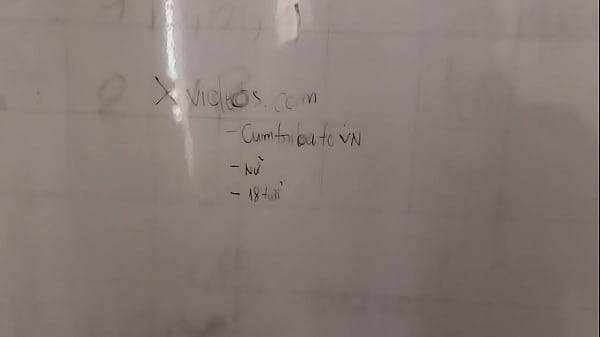 Xvideos.com
- Cumtribute VN
- Nữ
- 18 tuổi